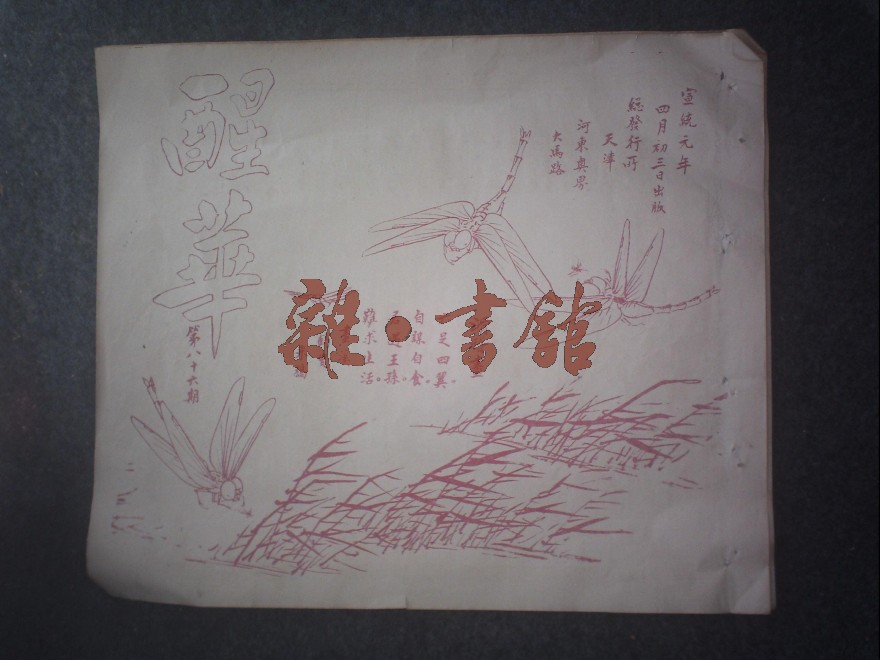 宣統元年
四月初三日出版
總發行所
天津
河東奧界
大馬路
醒華
第八十六期
足四翼
自謀自食
王孫
難求生活
雜·書館